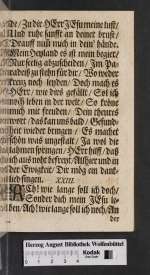 nde/ Zu dir HErr JEsu meine lust/
Und ruhe sanfft an deiner brust/
Drauff muß mich in dein hände.
Mein Heyland es ist mein begier/
Nur selig abzuscheiden/ Im Pa-
radeis zu stehn für dir/
Creutz noch leyden/ Doch mach es
HErr/ wie dirs gefällt/ Sol ich
noch leben in der welt/ So komt
mich mit freuden/ Dein theures
das kan uns bald/ Gesund-
heit wieder bringen/ Es machet
schön was ungestalt/ Ja vor die
springen/ HErr hilff/ daß
mich auß noht befreyt/ Alhier und in
der Ewigkeit/ Dir mög ein danck-
lied singen.
XXIII.
ACh! wie lange soll ich doch/
Sonder dich mein JEsu le-
ben/ Ach! wie lange soll ich noch/ An
der
Herzog August Bibliothek Wolfenbüttel
Kodak